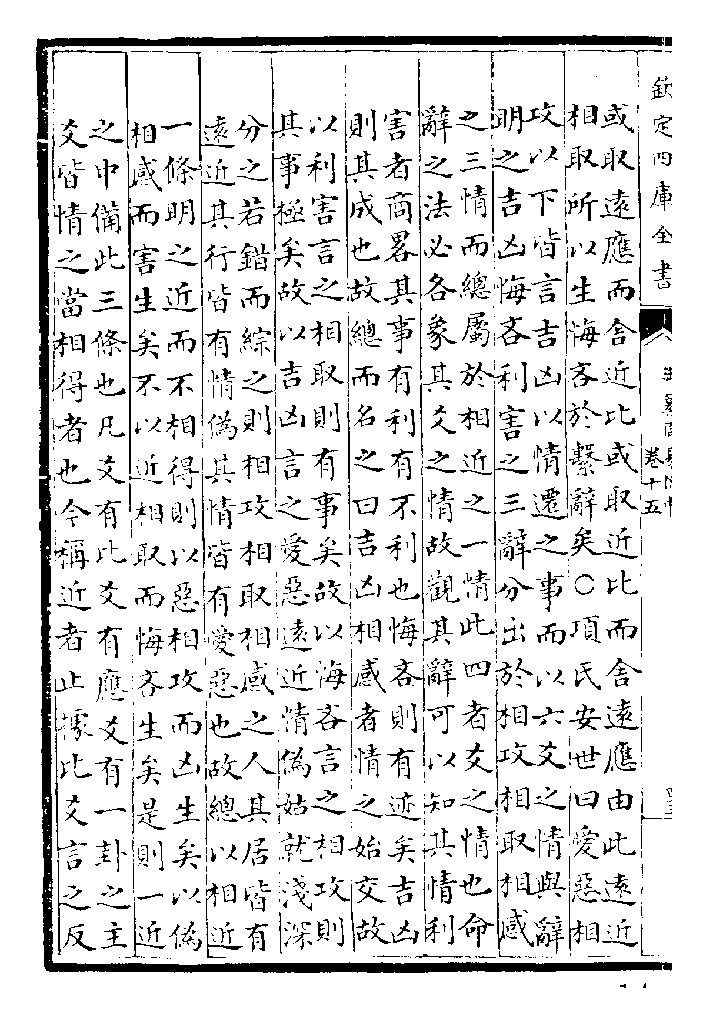 欽定四庫全書
卷十五
或取遠應而舍近比或取近比而舍遠應由此遠近
相取所以生悔吝於繫辭矣○項氏安世曰愛惡相
攻以下皆言吉凶以情遷之事而以六爻之情與辭
明之吉凶悔吝利害之三辭分出於相攻相取相感
之三情而總屬於相近之一情此四者爻之情也命
辭之法必各象其爻之情故觀其辭可以知其情利
害者商畧其事有利有不利也悔吝則有迹矣吉凶
則其成也故總而名之曰吉凶相感者情之始交故
以利害言之相取則有事矣故以悔吝言之相攻則
其事極矣故以吉凶言之愛惡遠近情偽姑就淺深
分之若錯而綜之則相攻相取相感之人其居皆有
遠近其行皆有情偽其情皆有愛惡也故總以相近
一條明之近而不相得則以惡相攻而凶生矣以偽
相感而害生矣不以近相取而悔吝生矣是則一近
之中備此三條也凡爻有比爻有應爻有一卦之主
爻皆情之當相得者也今稱近者止據比爻言之反